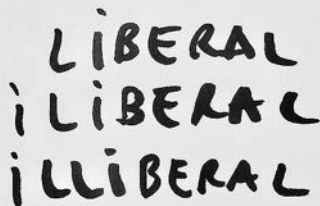 LiBERAL
iLiBERAL
iLLiBERAL